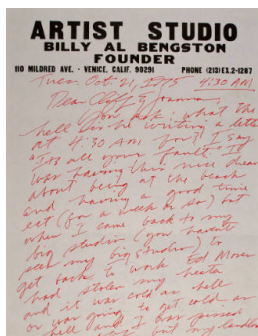 ARTIST STUDIO
BILLY AL BENGSTON
FOUNDER
110 MILDRED AVE. · VENICE, CALIF. 90291 PHONE (213) EX. 2-1287
Tues. Oct. 21, 1975 4:30 AM
Dear Cliff & Joanna,
You ask: what the
hell is he writing a letter
at 4:30 AM for? I say
"It's all your fault". I
was having this nice dream
about being at the beach
and having a good time
ect (for a week or so) but
when I came back to my
big studio (you haven't
seen my big studio) to
get back to work Ed Moses
had stolen my heater
and it was cold as hell
or was going to get cold as
hell and I was pissed